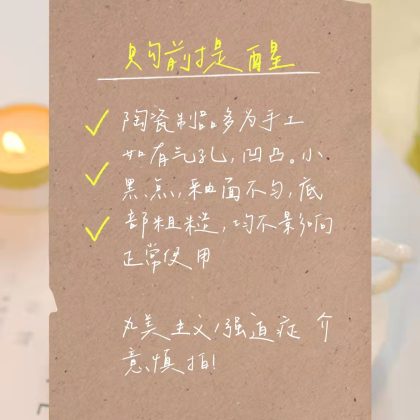 购前提醒
陶瓷制品多为手工
如有气孔,凹凸。小
黑点,釉面不匀,底
部粗糙,均不影响
正常使用
完美主义/强迫症 介
意慎拍!